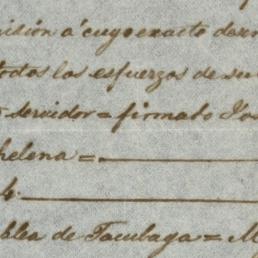 misión á cuyo exacto desem
todos los esfuerzos de su
servidor = firmado Jos
chelena =
blea de Tacubaya = M